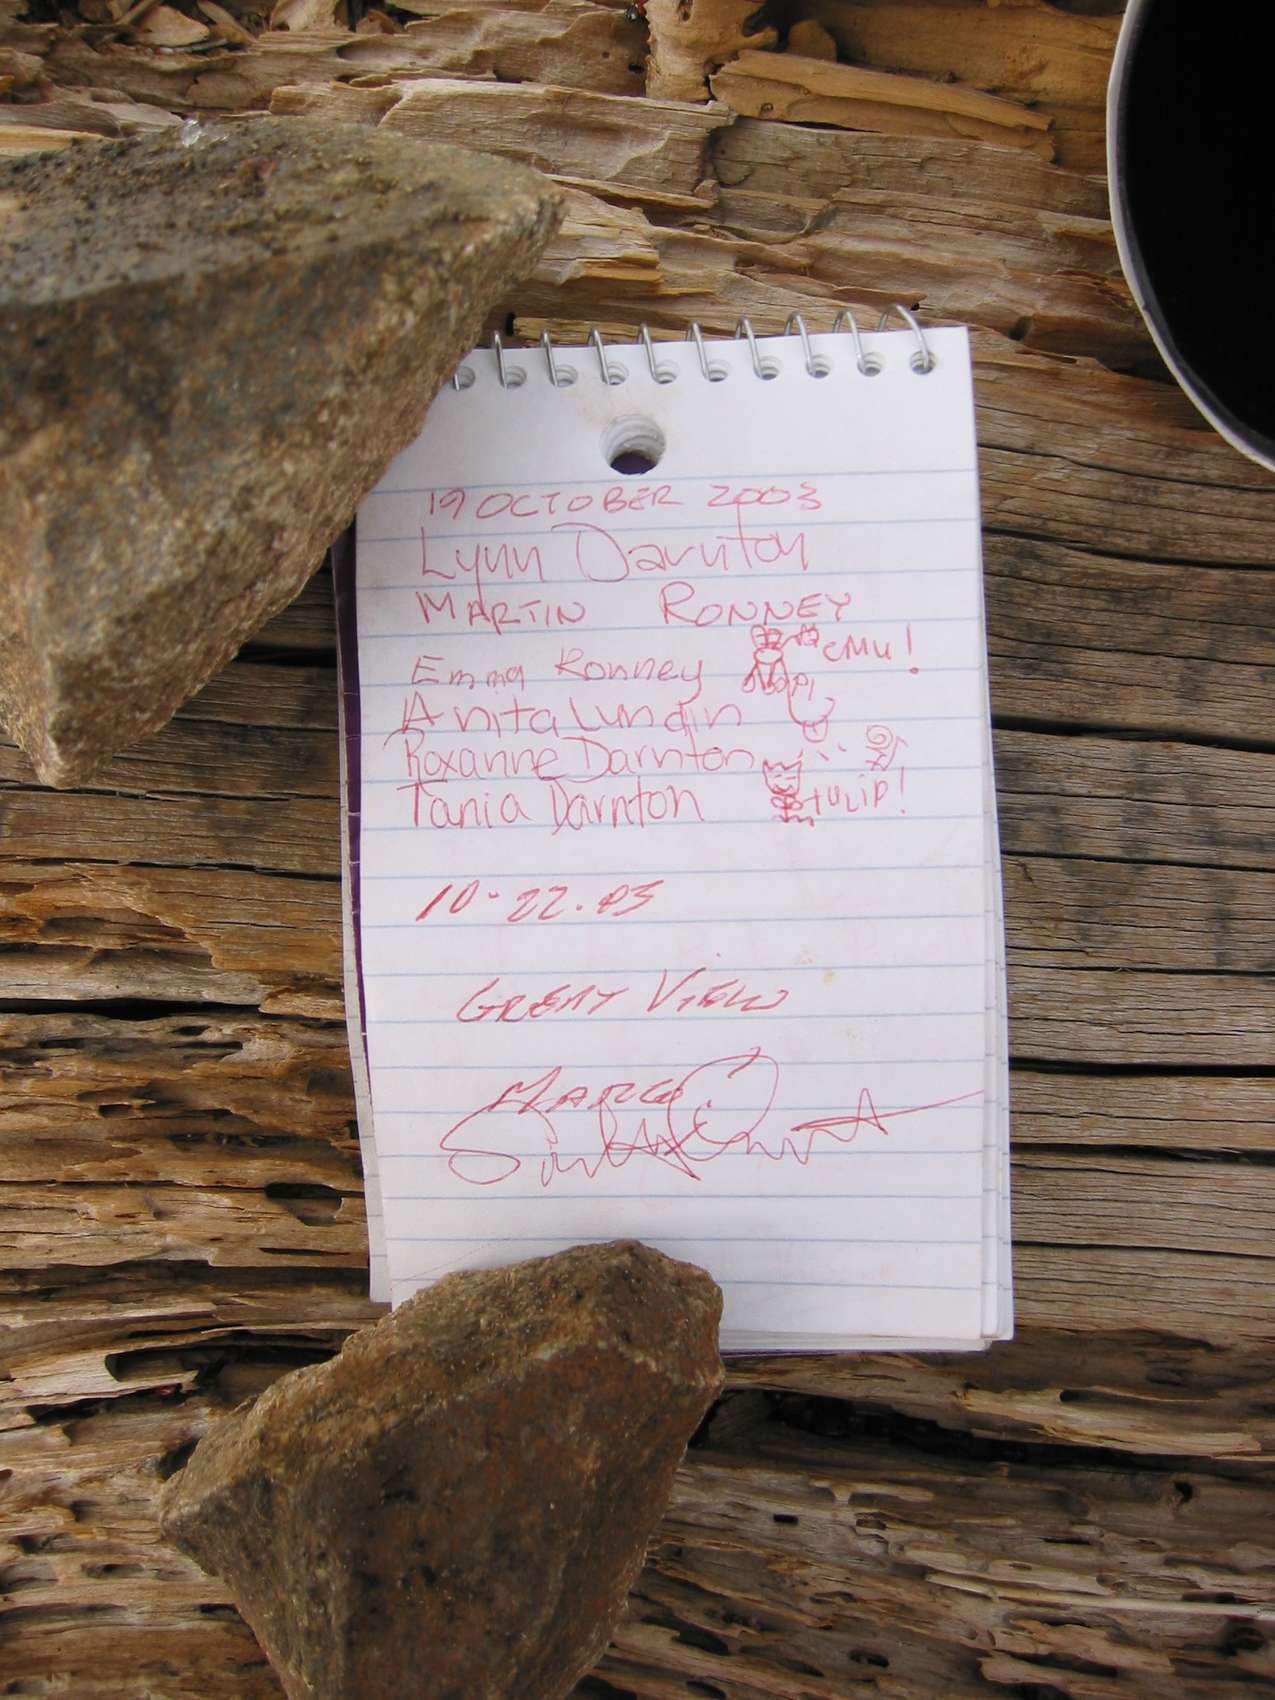 19 OCTOBER 2003
Lynn Darnton
MARTIN RONNEY
Emma Ronney CMU!
Anita Lundin
Roxanne Darnton
Tania Darnton TULIP!
10-22.03
GREAT VIEW